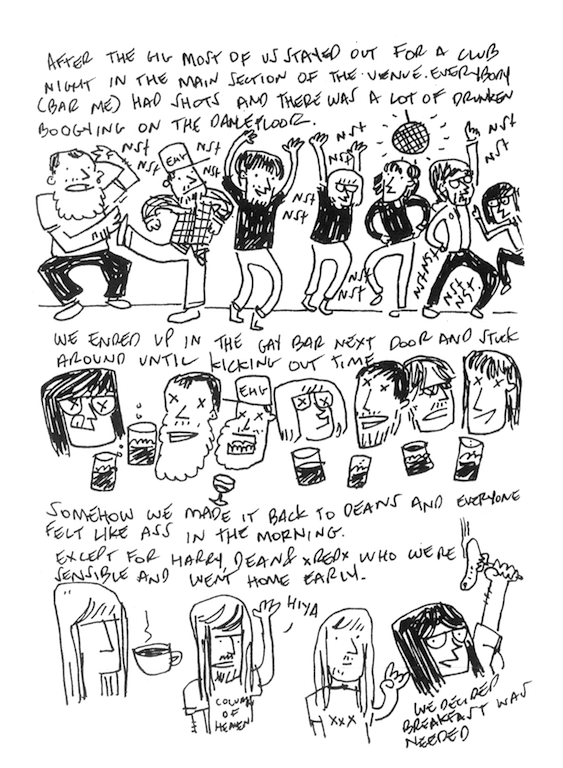 AFTER THE GIG MOST OF US STAYED OUT FOR A CLUB
NIGHT IN THE MAIN SECTION OF THE VENUE. EVERYBODY
(BAR ME) HAD SHOTS AND THERE WAS A LOT OF DRUNKEN
BOOGYING ON THE DANCEFLOOR.
NST
NST
NST
NST
EHG
NST
NST
NST
NST
NST
NST
NST
NST
NST
NST
NST
NST
NST
WE ENDED UP IN THE GAY BAR NEXT DOOR AND STUCK
AROUND UNTIL KICKING OUT TIME
EHG
SOMEHOW WE MADE IT BACK TO DEANS AND EVERYONE
FELT LIKE ASS IN THE MORNING.
EXCEPT FOR HARRY, DEAN & XREDX WHO WERE
SENSIBLE AND WENT HOME EARLY.
HIYA
COLUMN
OF
HEAVEN
XXX
WE DECIDED
BREAKFAST WAS
NEEDED